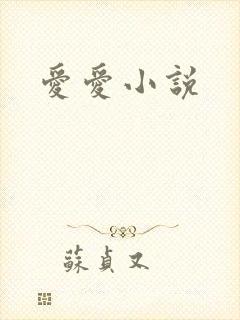 愛愛小説
蘇貞又